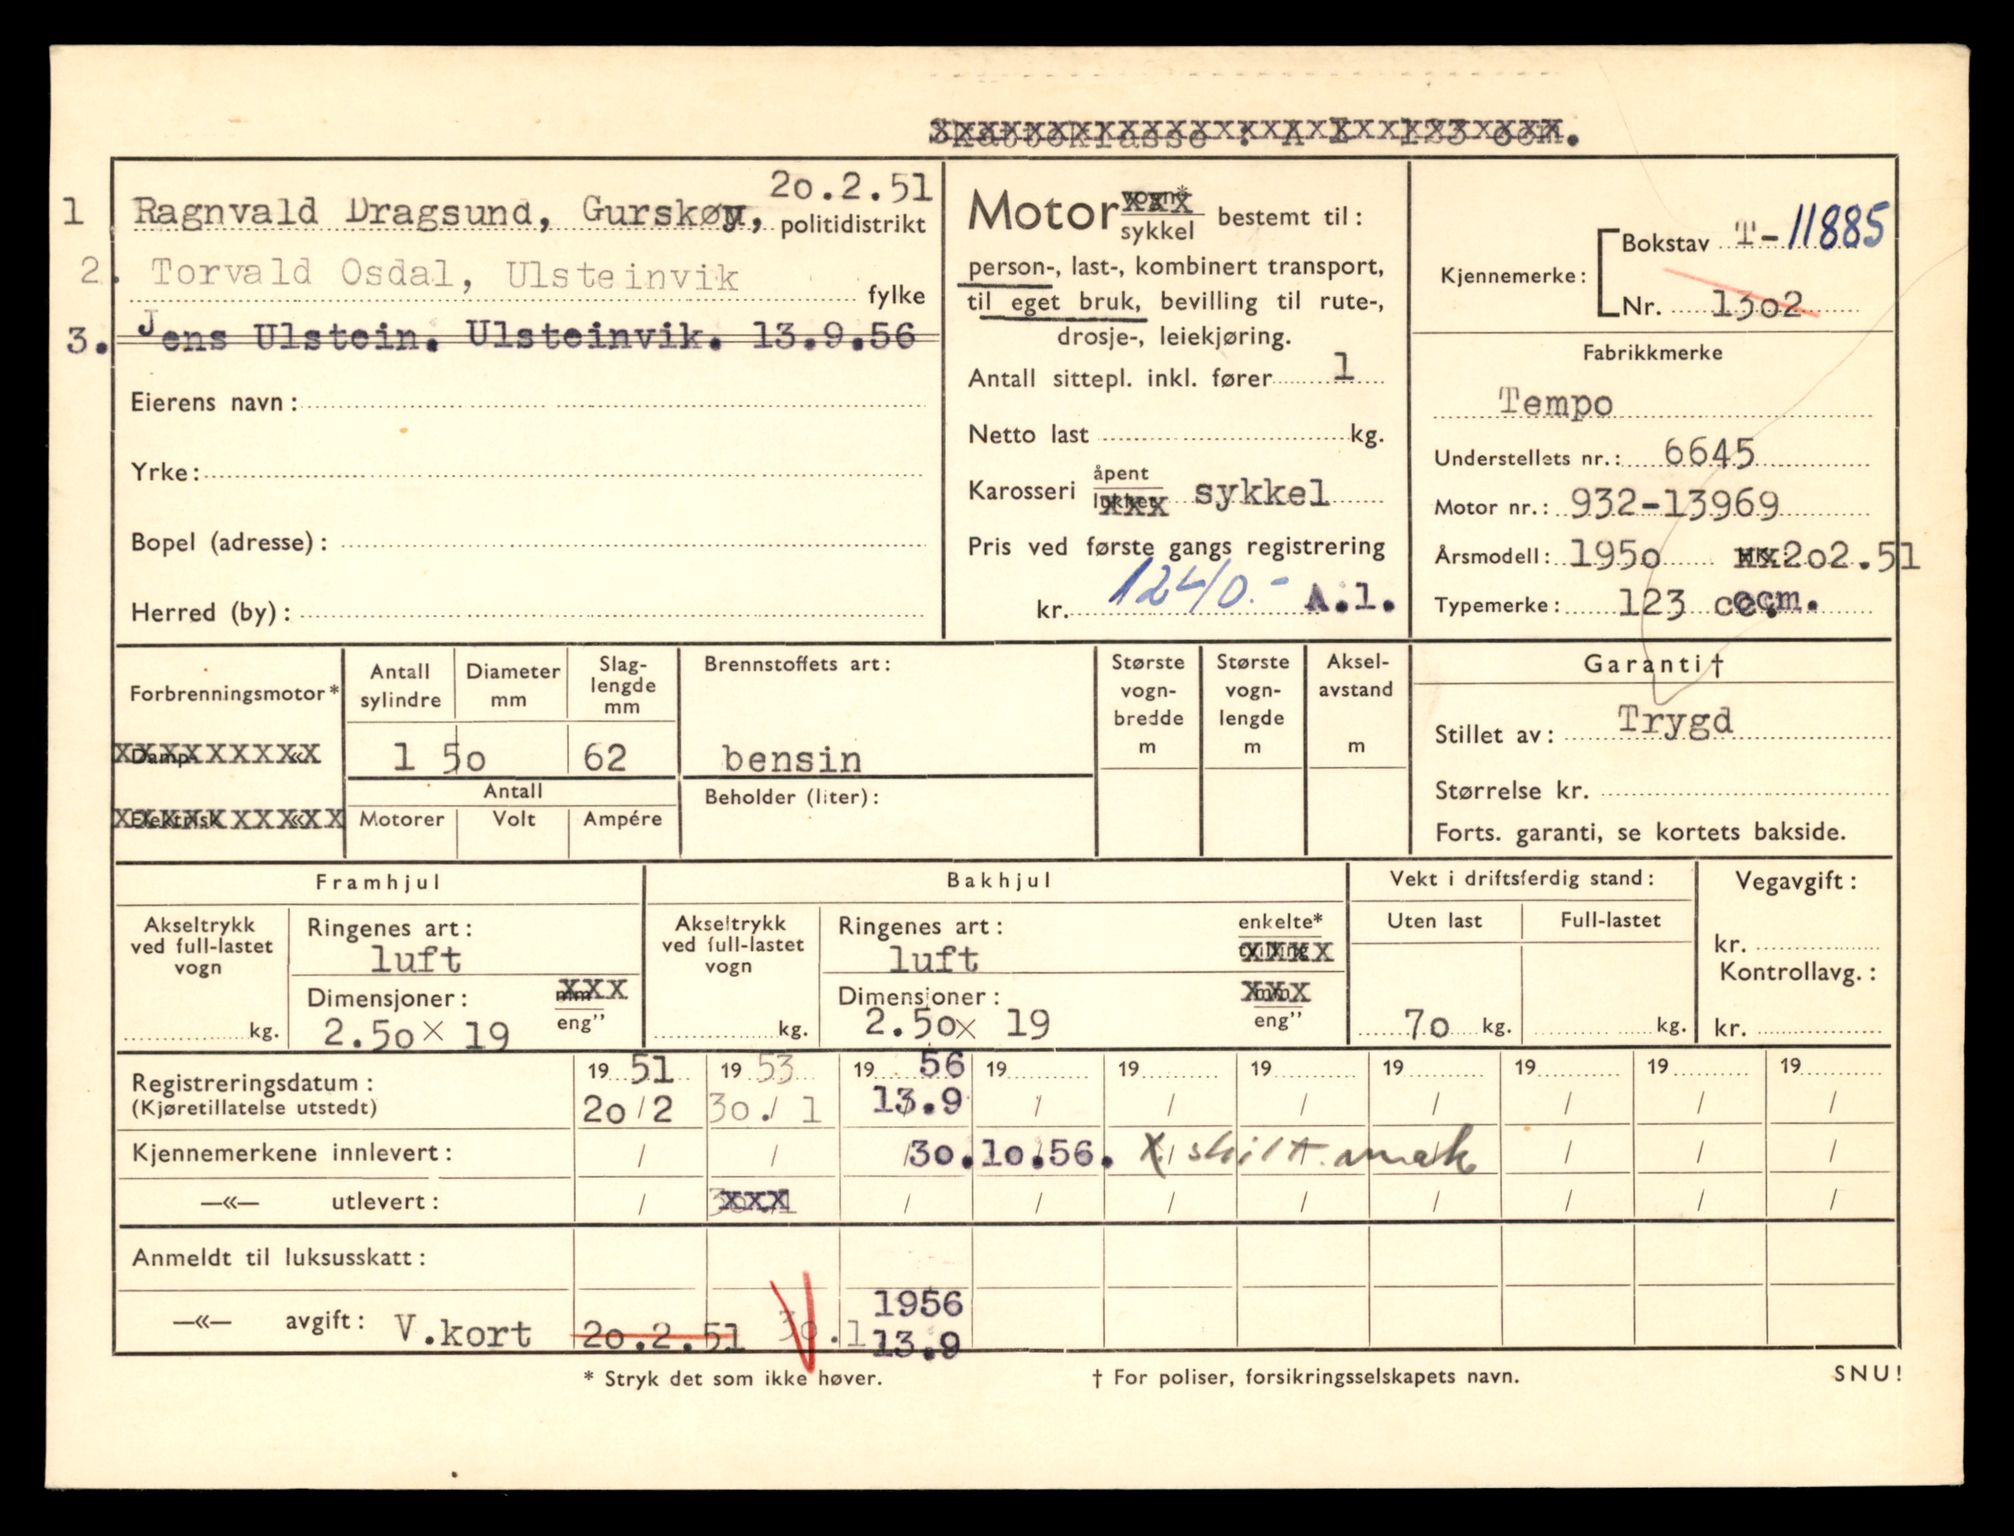 Skatteklasse : A I 123 ccm.
1 Ragnvald Dragsund, Gurskøy, 20.2.51 politidistrikt
2. Torvald Osdal, Ulsteinvik fylke
3. Jens Ulstein. Ulsteinvik. 13.9.56
Eierens navn :
Yrke :
Bopel (adresse) :
Herred (by) :
Motor vogn* sykkel bestemt til :
person-, last-, kombinert transport,
til eget bruk, bevilling til rute-,
drosje-, leiekjøring.
Antall sittepl. inkl. fører 1
Netto last kg.
Karosseri åpent lukket sykkel
Pris ved første gangs registrering
kr. 1240.- A.1.
Kjennemerke : Bokstav T-11885
Nr. 1302
Fabrikkmerke
Tempo
Understellets nr. : 6645
Motor nr. : 932-13969
Årsmodell : 1950 202.51
Typemerke : 123 ccm.
Forbrenningsmotor*
Damp- «
Elektrisk «
Antall sylindre
Diameter mm
Slag-lengde mm
1 50 62
Antall
Motorer Volt Ampére
Brennstoffets art :
bensin
Beholder (liter) :
Største vogn-bredde m
Største vogn-lengde m
Aksel-avstand m
Garanti †
Stillet av : Trygd
Størrelse kr.
Forts. garanti, se kortets bakside.
Framhjul
Akseltrykk ved full-lastet vogn
kg.
Ringenes art :
luft
Dimensjoner : mm
2.50 × 19 eng”
Bakhjul
Akseltrykk ved full-lastet vogn
kg.
Ringenes art : enkelte*
luft tvilling
Dimensjoner : mm
2.50× 19 eng”
Vekt i driftsferdig stand :
Uten last Full-lastet
70 kg. kg.
Vegavgift :
kr.
Kontrollavg. :
kr.
Registreringsdatum : 19 51 19 53 19 56 19 19 19 19 19 19 19
(Kjøretillatelse utstedt) 20/2 30./1 13.9 / / / / / / /
Kjennemerkene innlevert : / / / 30.10.56. X skilt. amak / / /
—«— utlevert : / 30./1 / / / / / / / /
Anmeldt til luksusskatt :
1956
—«— avgift : V.kort 20.2.51 30.1 13.9
* Stryk det som ikke høver.
† For poliser, forsikringsselskapets navn.
SNU!